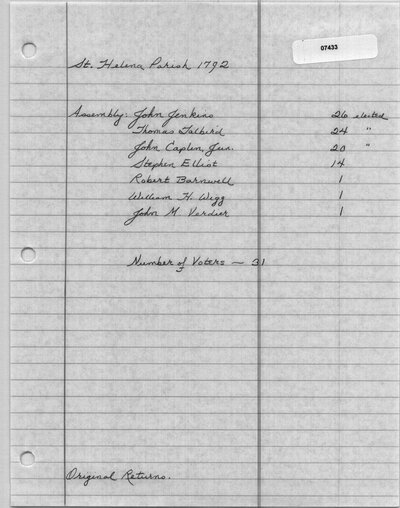 07433
St. Helena Parish 1792
Assembly: John Jenkins 26 elected
Thomas Talbird 24 "
John Caplen, Jun. 20 "
Stephen Elliot 14
Robert Barnwell 1
William H. Wigg 1
John M. Verdier 1
Number of Voters — 31
Original Returns.